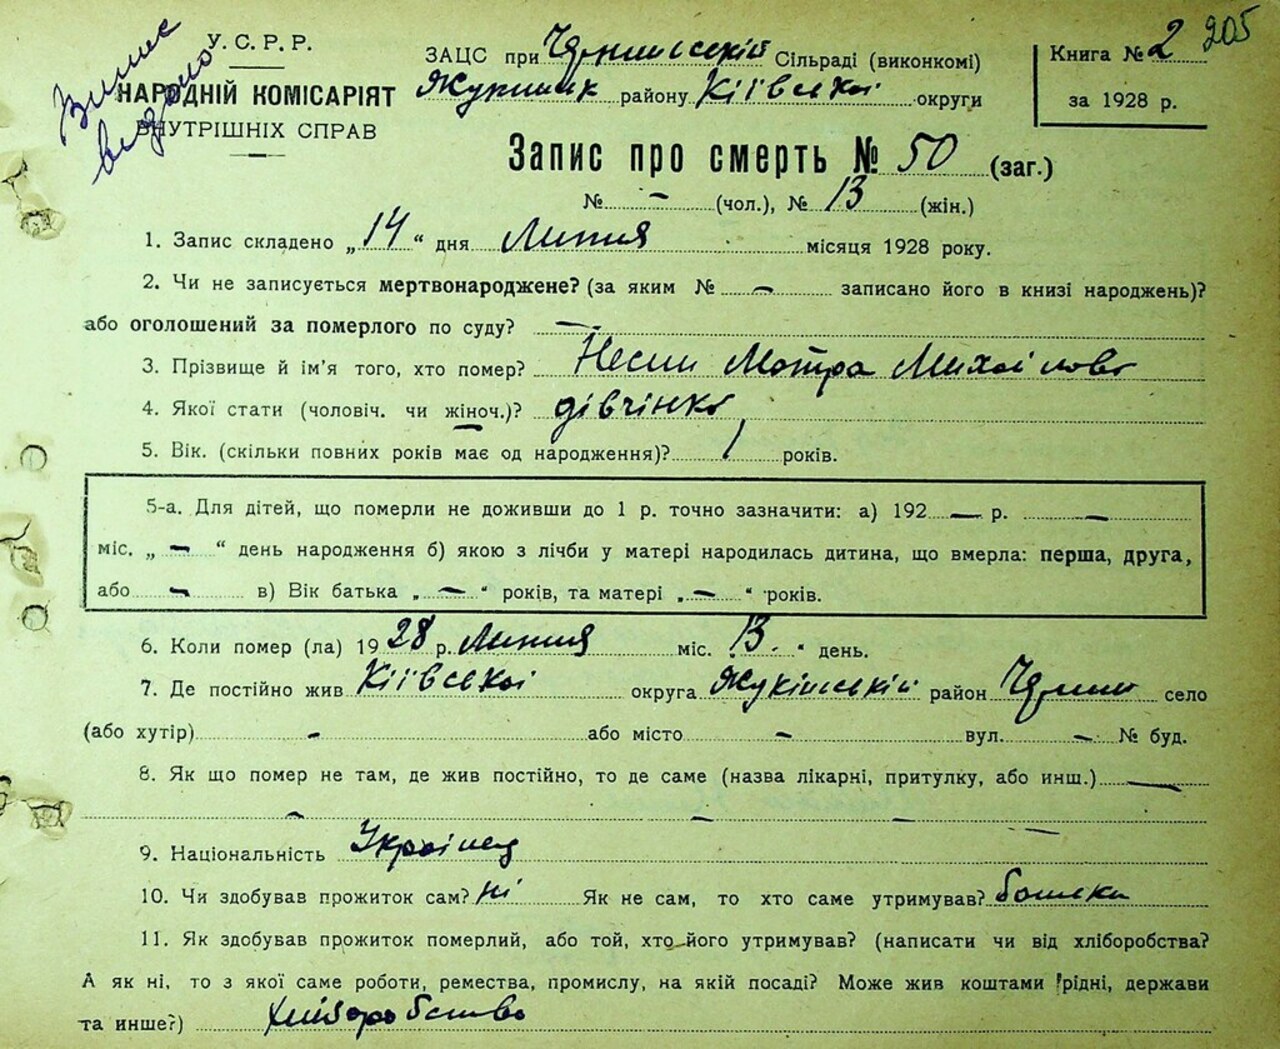 Випис видано
У. С. Р. Р.
НАРОДНІЙ КОМІСАРІЯТ
ВНУТРІШНІХ СПРАВ
ЗАЦС при Сільраді (виконкомі)
району Київської округи
Книга № 2 205
за 1928 р.
Запис про смерть № 50 (заг.)
№ – (чол.), № 13 (жін.)
1. Запис складено „14“ дня Липня місяця 1928 року.
2. Чи не записується мертвонароджене? (за яким № – записано його в книзі народжень)?
або оголошений за померлого по суду? –
3. Прізвище й ім'я того, хто помер? Мотра Михайлова
4. Якої стати (чоловіч. чи жіноч.)? дівчінка
5. Вік. (скільки повних років має од народження)? 1 років.
5-а. Для дітей, що померли не доживши до 1 р. точно зазначити: а) 192 – р. –
міс. „ – “ день народження б) якою з лічби у матері народилась дитина, що вмерла: перша, друга,
або – в) Вік батька „ – “ років, та матері „ – “ років.
6. Коли помер (ла) 1928 р. Липня міс. 13. “ день.
7. Де постійно жив Київської округа район село
(або хутір) – або місто – вул. – № буд.
8. Як що помер не там, де жив постійно, то де саме (назва лікарні, притулку, або инш.) –
– – – –
9. Національність Українец
10. Чи здобував прожиток сам? ні Як не сам, то хто саме утримував? батьки
11. Як здобував прожиток померлий, або той, хто його утримував? (написати чи від хліборобства?
А як ні, то з якої саме роботи, ремества, промислу, на якій посаді? Може жив коштами рідні, держави
та инше?) хліборобство